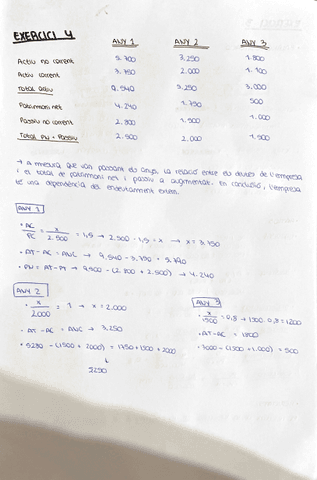 EXERCICI 4
ANY 1 ANY 2 ANY 3
Actiu no corrent 5.790 3.250 1.800
Actiu corrent 3.750 2.000 1.200
Total actiu 9.540 5.250 3.000
Patrimoni net 4.240 1.750 500
Passiu no corrent 2.800 1.500 1.000
Total PN + Passiu 2.500 2.000 1.500
→ A mesura que van passant els anys, la relació entre els deutes de l'empresa
i el total de patrimoni net i passiu a augmentat. En conclusió, l'empresa
té una dependència del endeutament extern.
ANY 1
• AC/PC = x/2.500 = 1,5 → 2.500 · 1,5 = x → x = 3.750
• AT - AC = ANC → 9.540 - 3.750 = 5.790
• PN = AT - PT → 9.500 - (2.800 + 2.500) → 4.240
ANY 2
• x/2000 = 1 → x = 2.000
• AT - AC = ANC → 3.250
• 5250 - (1500 + 2000) = 1750 + 1500 + 2000
↓
5250
ANY 3
• x/1500 = 0,8 → 1500 · 0,8 = 1200
• AT - AC = 1800
• 3000 - (1500 + 1.000) = 500